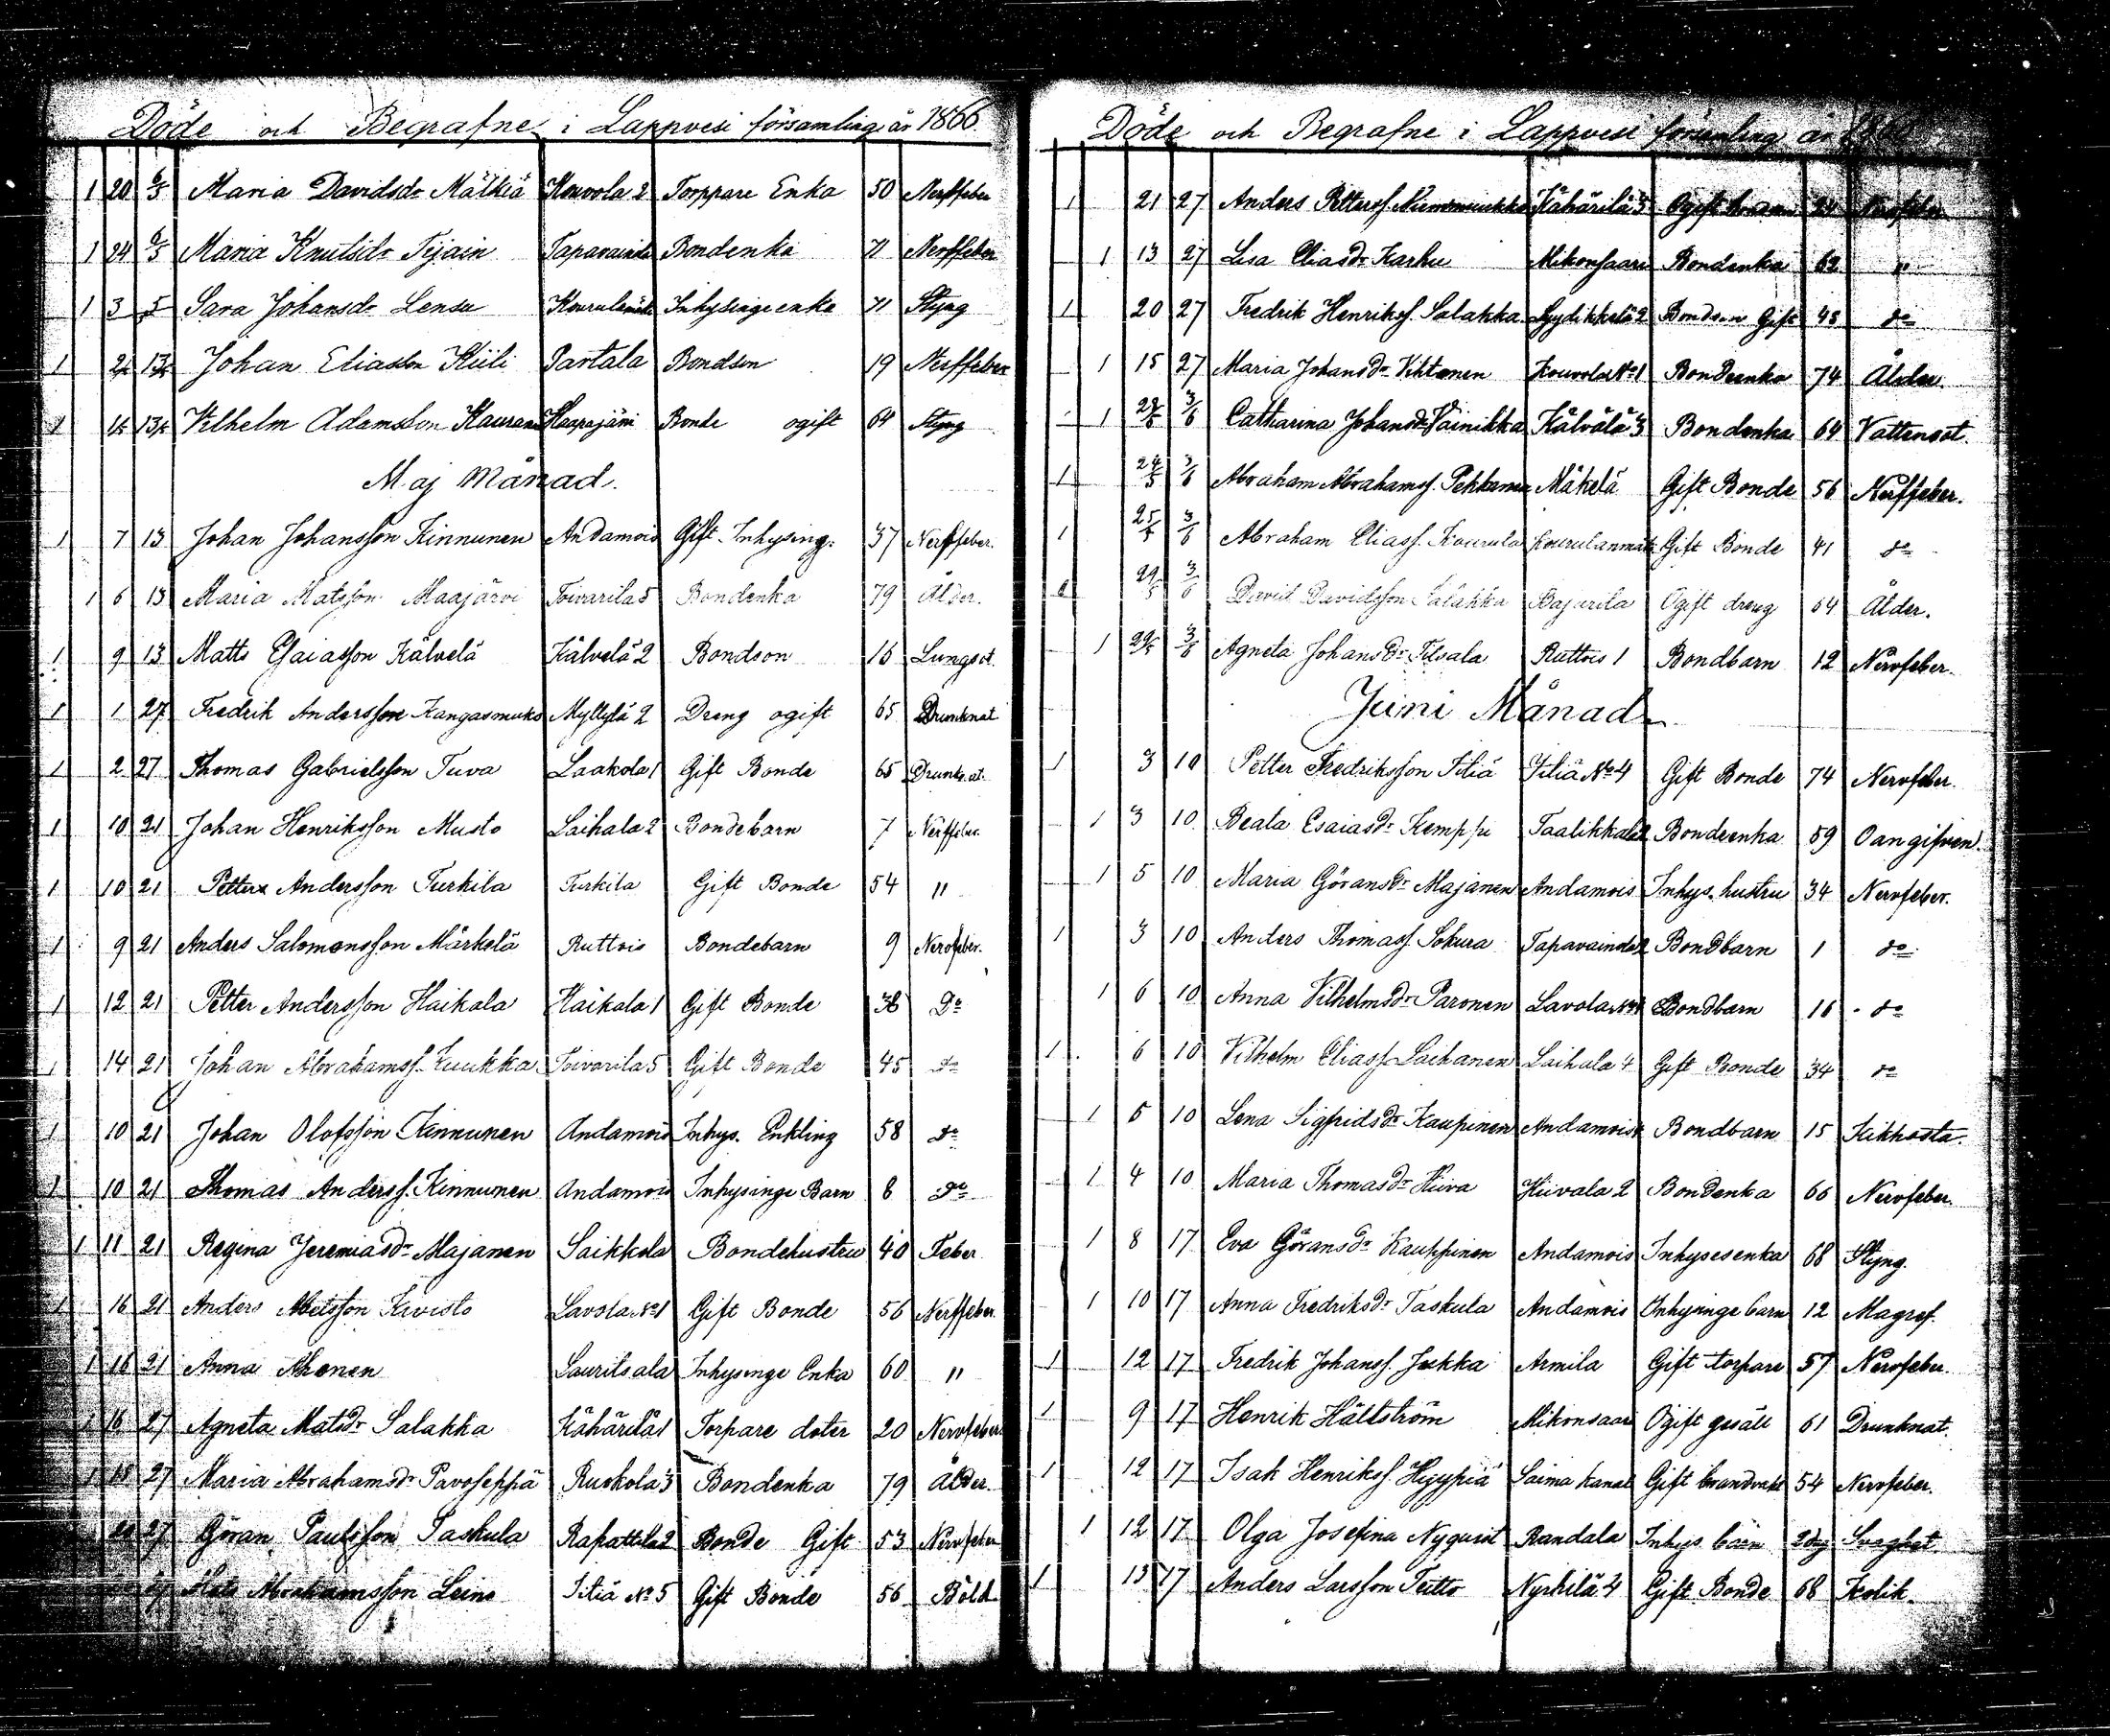 Döde och Begrafne i Lappvesi församling år 1866
1 20 6/5 Maria Davidsdr Mälkiä Kouvola 2 Torppare Enka 50 Nerffeber
1 24 6/5 Maria Knutsdr Tijain Tapavainola Bondenka 71 Nerffeber
1 3 5 Sara Johansdr Lensu Inhysinge enka 71 Styng
1 Johan Eliasson Kiili Partala Bondson 19 Nerffeber
1 Vilhelm Adamsson Haapajärvi Bonde ogift 64 Styng
Maj Månad.
1 7 13 Johan Johansson Kinnunen Andamois Gift Inhysing. 37 Nerffeber.
1 6 13 Maria Matsson Maajärvi Toivarila 5 Bondenka 79 Ålder.
1 9 13 Matts Esaiasson Kälvelä Kälvelä 2 Bondson 16 Lungsot.
1 1 27 Fredrik Andersson Kangasmuko Myllylä 2 Dreng ogift 65 Drunknat
1 2 27 Thomas Gabrielsson Tuva Laakola 1 Gift Bonde 65 Drunk.at.
1 10 21 Johan Henriksson Musto Laihala 2 Bondebarn 7 Nerffeber.
1 10 21 Petter Andersson Turkila Turkila Gift Bonde 54 "
1 9 21 Anders Salomonsson Märkelä Ruttois Bondebarn 9 Nervfeber.
1 12 21 Petter Andersson Haikala Haikala 1 Gift Bonde 36 Do
1 14 21 Johan Abrahamss. Kuukka Toivarila 5 Gift Bonde 45 do
1 10 21 Johan Olofsson Kinnunen Andamois Inhys. Enkling 58 do
1 10 21 Thomas Anderss. Kinnunen Andamois Inhysinge Barn 8 do
1 11 21 Regina Jeremiasdr Majanen Saikkola Bondehustru 40 Feber
1 16 21 Anders Abelsson Kivisto Lavola No 1 Gift Bonde 56 Nerffeber.
1 16 21 Anna Ahonen Lauritsala Inhysinge Enka 60 "
1 16 27 Agneta Matsdr Salakka Kähärilä 1 Torpare doter 20 Nervfeber
1 18 27 Maria Abrahamsdr Pavoseppä Ruokola 3 Bondenka 79 Ålder.
20 27 Göran Paulsson Taskula Rapattila 2 Bonde Gift 53 Nervfeber
27 Mats Abrahamsson Leino Tiliä No 5 Gift Bonde 56 Böld
Döde och Begrafne i Lappvesi församling år 1866
1 21 27 Anders Petterss. Kähärilä 3 Ogift 24 Nervfeber
1 13 27 Lisa Eliasdr Karhu Mikonsaari Bondenka 62 "
1 20 27 Fredrik Henrikss. Salakka Hyrkkälä 2 Bondson Gift 45 do
1 15 27 Maria Johansdr Vihtonen Kouvola No 1 Bondeenka 74 Ålder.
1 28/5 3/6 Catharina Johansdr Vainikka Kälvälä 3 Bondenka 64 Vattensot.
1 24/5 3/6 Abraham Abrahamss. Pekkanen Mäkelä Gift Bonde 56 Nerffeber.
1 25/5 3/6 Abraham Eliass. Kourula Kourulanmäki Gift Bonde 41 do
1 29/5 3/6 David Davidsson Salakka Bajarila Ogift dreng 64 Ålder.
1 29/5 3/6 Agneta Johansdr Tilsala Ruttois 1 Bondbarn 12 Nervfeber.
Juni Månad
1 3 10 Petter Fredriksson Tiliä Tiliä No 4 Gift Bonde 74 Nervfeber.
1 3 10 Beata Esaiasdr Kemppi Taalikkala 2 Bondeenka 59 Oangifven.
1 5 10 Maria Göransdr Majanen Andamois Inhys. hustru 34 Nervfeber.
1 3 10 Anders Thomass. Sokura Tapavainola 2 Bondbarn 1 do
1 6 10 Anna Vilhelmsdr Paronen Lavola Bondbarn 16 do
1 6 10 Vilhelm Eliass. Laihanen Laihala 4 Gift Bonde 34 do
1 5 10 Lena Sigfridsdr Kaupinen Andamois Bondbarn 15 Kikhosta.
1 4 10 Maria Thomasdr Hiiva Hiivala 2 Bondenka 66 Nervfeber.
1 8 17 Eva Göransdr Kauppinen Andamois Inhysesenka 68 Styng.
1 10 17 Anna Fredriksdr Taskula Andamois Inhysinge barn 12 Magref.
1 12 17 Fredrik Johanss. Jukka Armila Gift torpare 57 Nervfeber.
1 9 17 Henrik Hällström Mikonsaari Ogift gesäll 61 Drunknat.
1 12 17 Isak Henrikss. Hyyppiä Saima Kanal Gift brandvakt 54 Nervfeber.
1 12 17 Olga Josefina Nyqvist Randala Inhys. barn 2 dag Svaghet.
1 13 17 Anders Larsson Teitto Nyrhilä 4 Gift Bonde 68 Kolik.